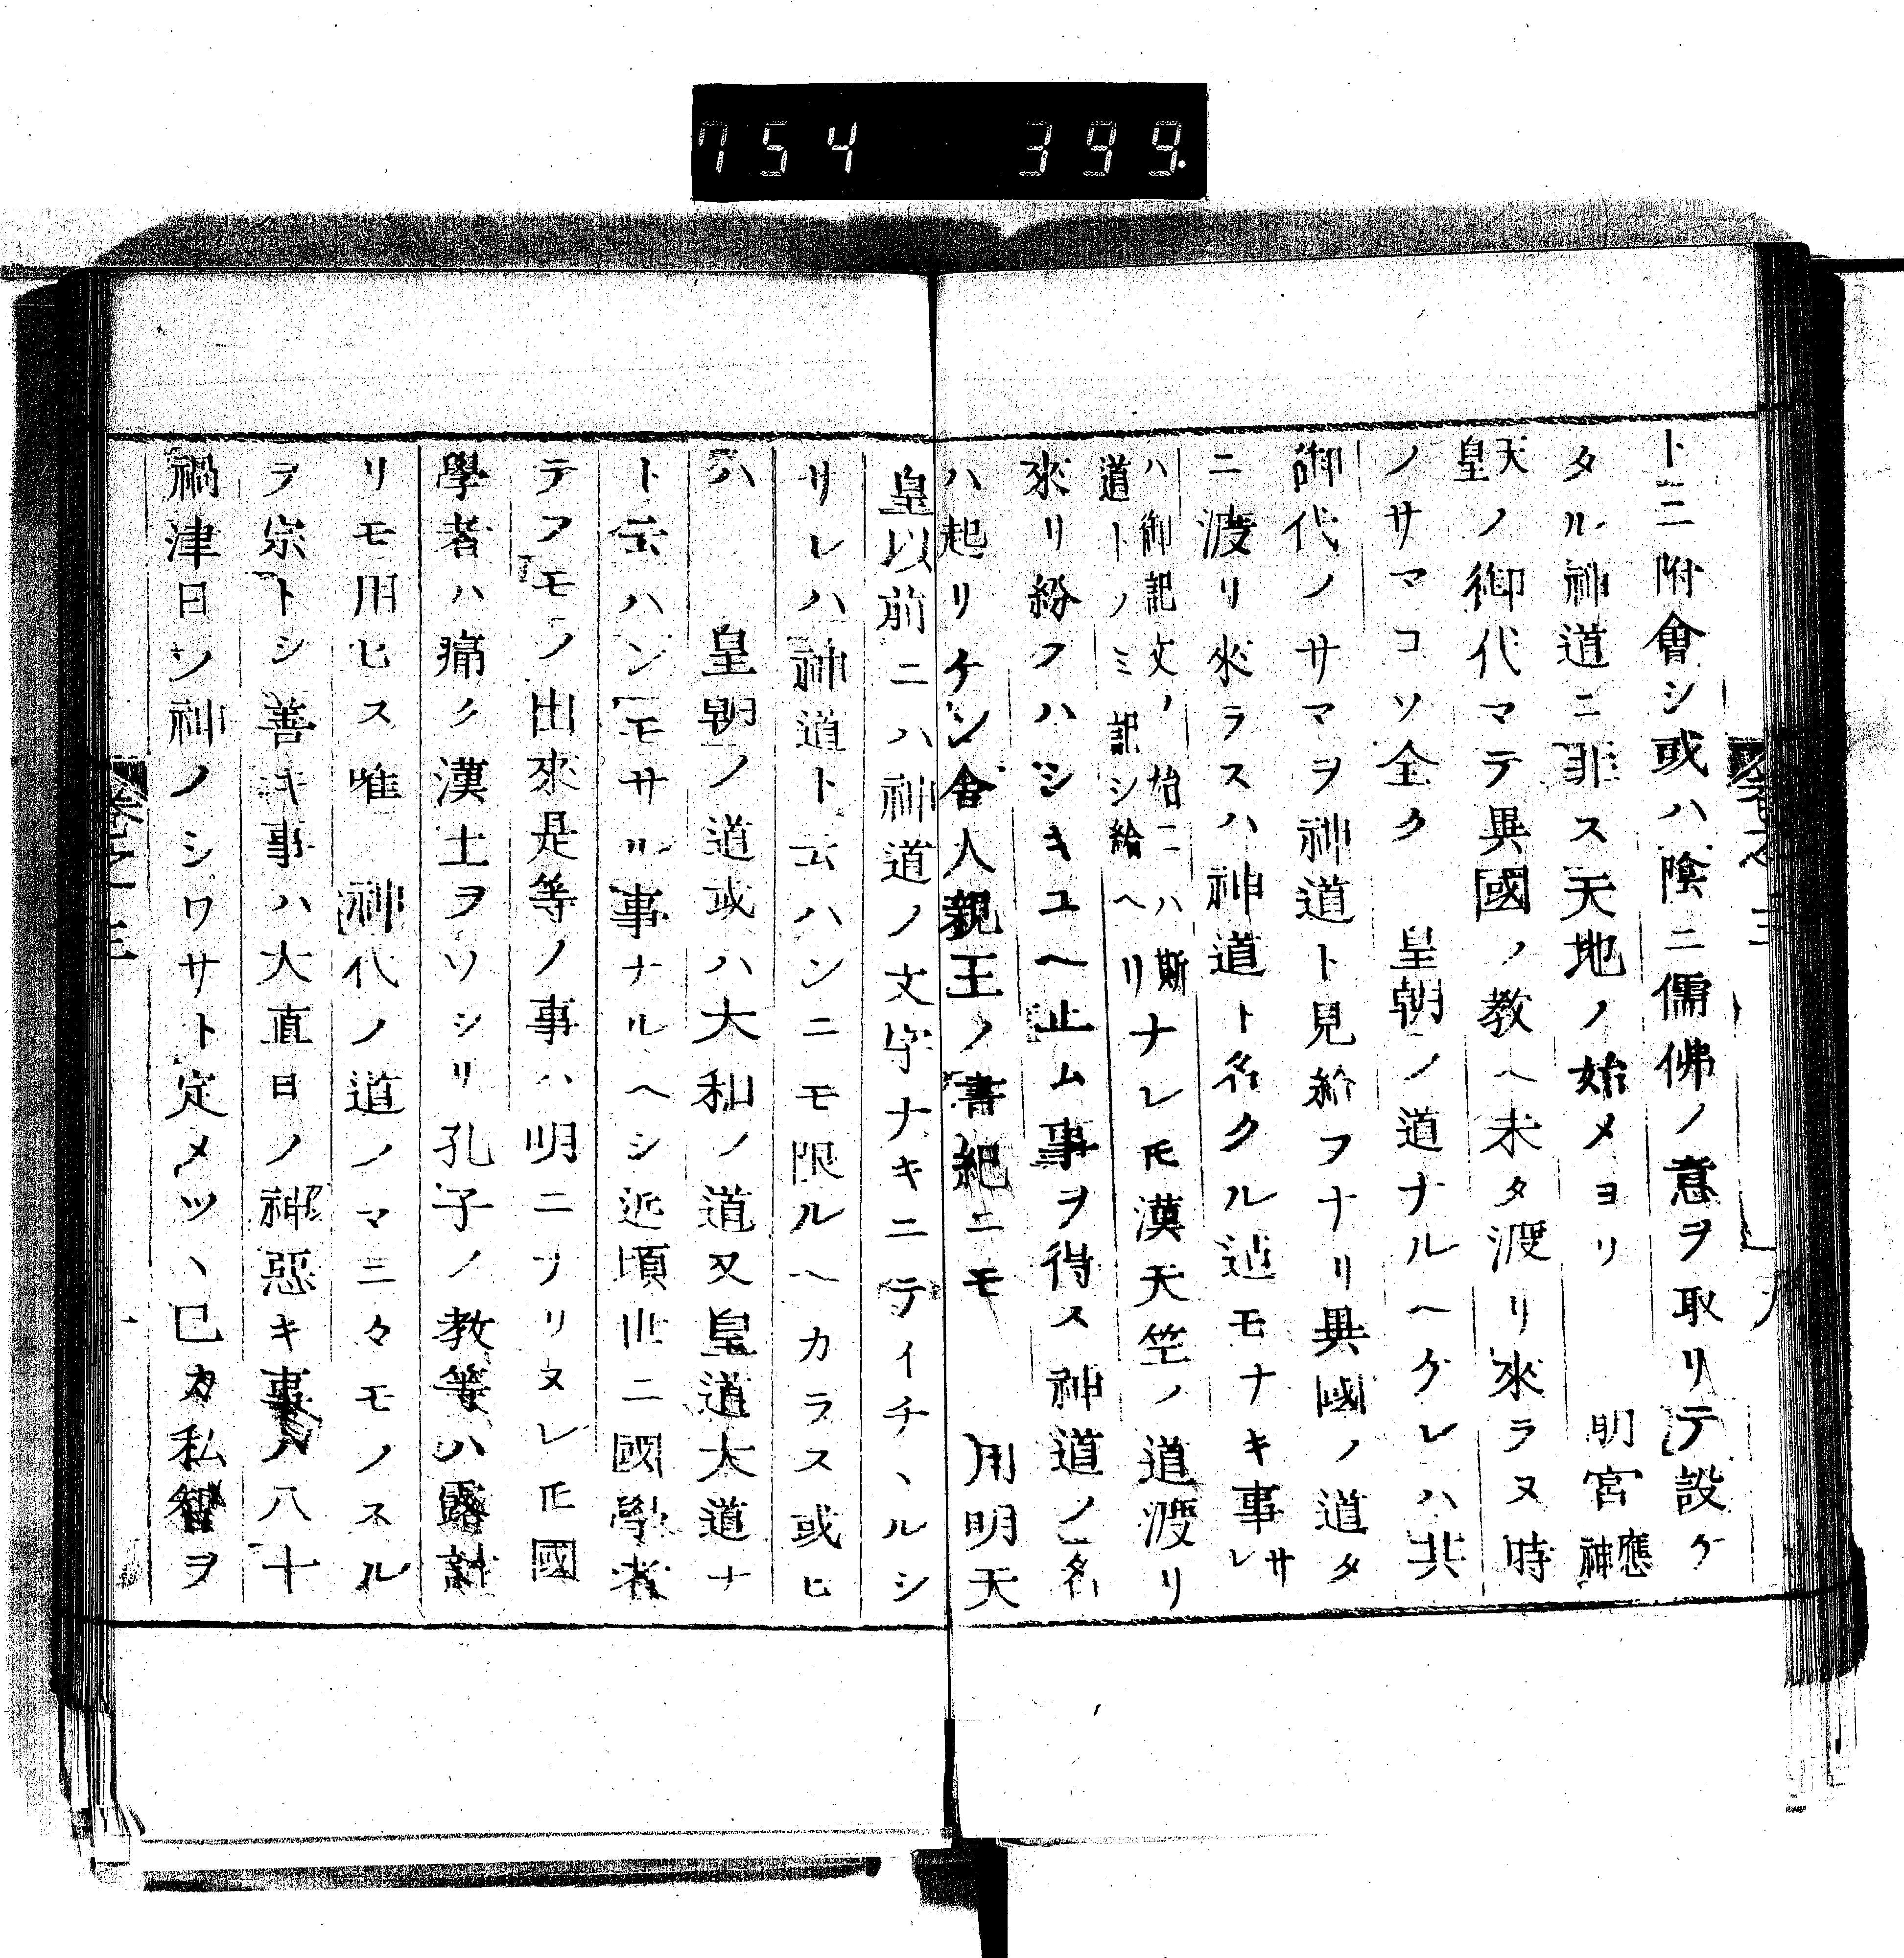 754 399.
トニ附會シ或ハ陰ニ儒佛ノ意ヲ取リテ設ケ
タル神道ニ非ス天地ノ始メヨリ 明宮應神
天皇ノ御代マテ異國ノ教ヘ未タ渡リ來ラヌ時
ノサマコソ全ク 皇朝ノ道ナルヘケレハ其
御代ノサマヲ神道ト見給フナリ異國ノ道タ
ニ渡リ來ラスハ神道ト名クル迠モナキ事サレ
ハ御記文ノ始ニハ斯
道トノミ記シ給ヘリナレㇳモ漢天竺ノ道渡リ
來リ紛フハシキユヘ止ム事ヲ得ス神道ノ名
ハ起リケン舎人親王ノ書紀ニモ 用明天
皇以前ニハ神道ノ文字ナキニテイチヽルシ
サレハ神道ト云ハンニモ限ルヘカラス或ヒ
ハ 皇朝ノ道或ハ大和ノ道又皇道大道ナ
ト云ハンモサル事ナルヘシ近頃世ニ國學者
テフモノ出來是等ノ事ハ明ニナリヌレㇳ國
學者ハ痛ク漢土ヲソシリ孔子ノ教等ハ露計
リモ用ヒス唯 神代ノ道ノマニ々モノスル
ヲ宗トシ善キ事ハ大直日ノ神惡キ事ハ八十
禍津日ノ神ノシワサト定メツヽ己カ私智ヲ